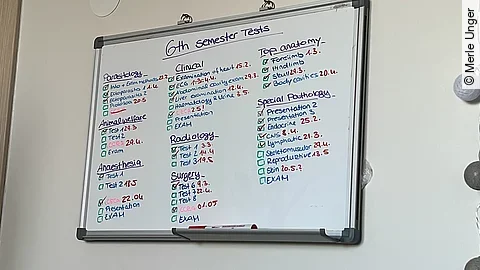 6th Semester Tests
Parasitology
Intro + Exam methods
Ectoparasites 1.4.
Endoparasites 2
Protozoa 20.5
Animal welfare
Test 1 29.3
Test 2
29.4.
Exam
Anaesthesia
Test 1
Test 2 18.5
22.04
Presentation
EXAM
Clinical
Examination of heart 15.2.
ECG
Abdominal cavity exam 29.3.
Liver examination 12.4.
Haematology & Urine 3.5.
Presentation
EXAM
Radiology
Test 1 3.3
Test 2
Test 3 19.5
Surgery
Test 6 9.3.
Test 7 22.4.
Test 8
01.05
EXAM
Top. anatomy
Forelimb 1.3.
Hindlimb
Skull 29.3.
Body cavities 20.4.
Special Pathology
Presentation 2
Presentation 3
Endocrine 25.2.
CNS 8.4.
Lymphatic 21.3.
Skeletomuscular 29.4.
Reproductive 13.5
Skin 20.5.?
EXAM
© Merle Unger